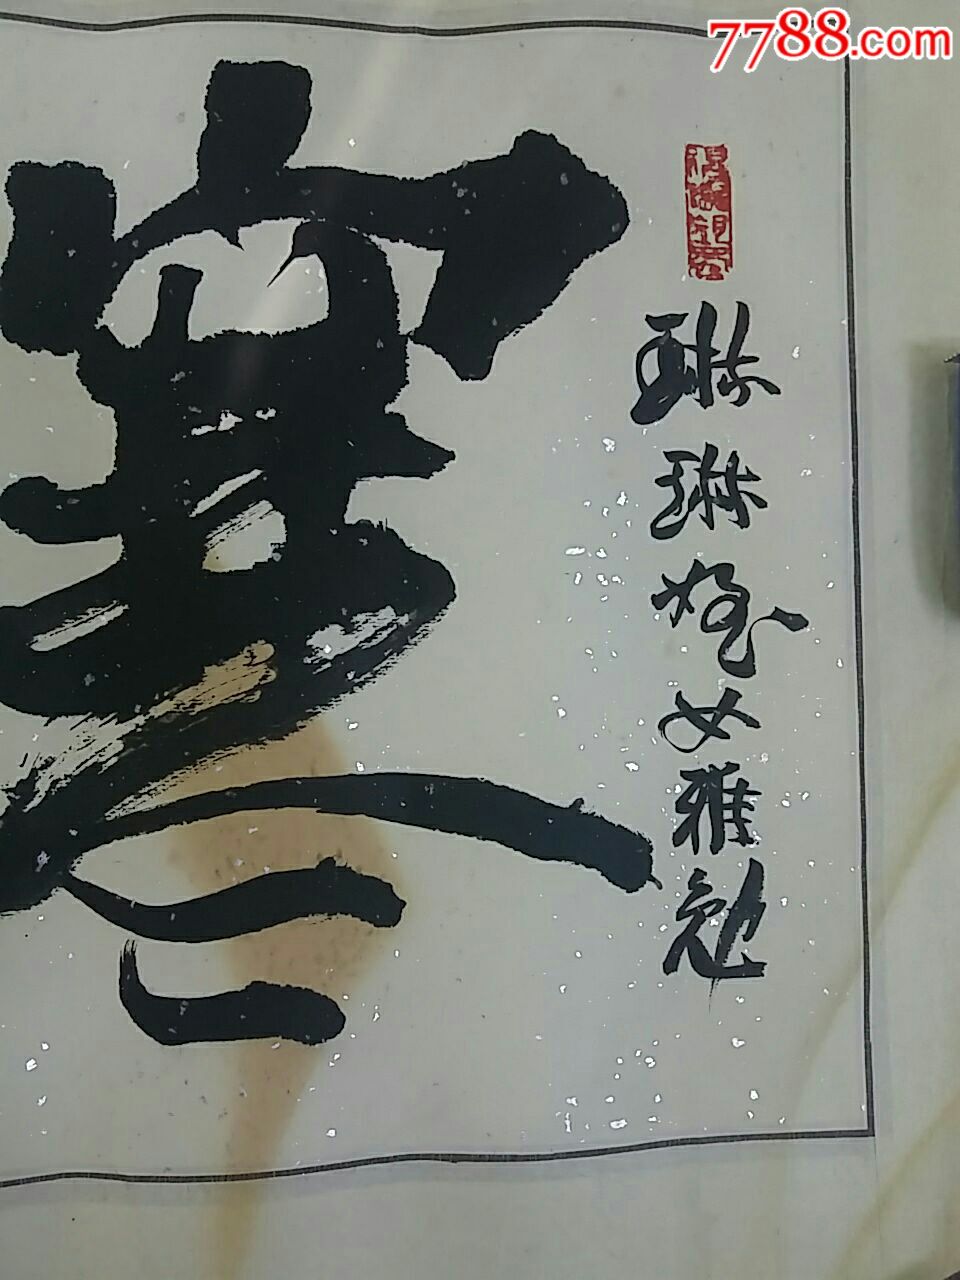 7788.com
琳琳姪女雅勉
寒